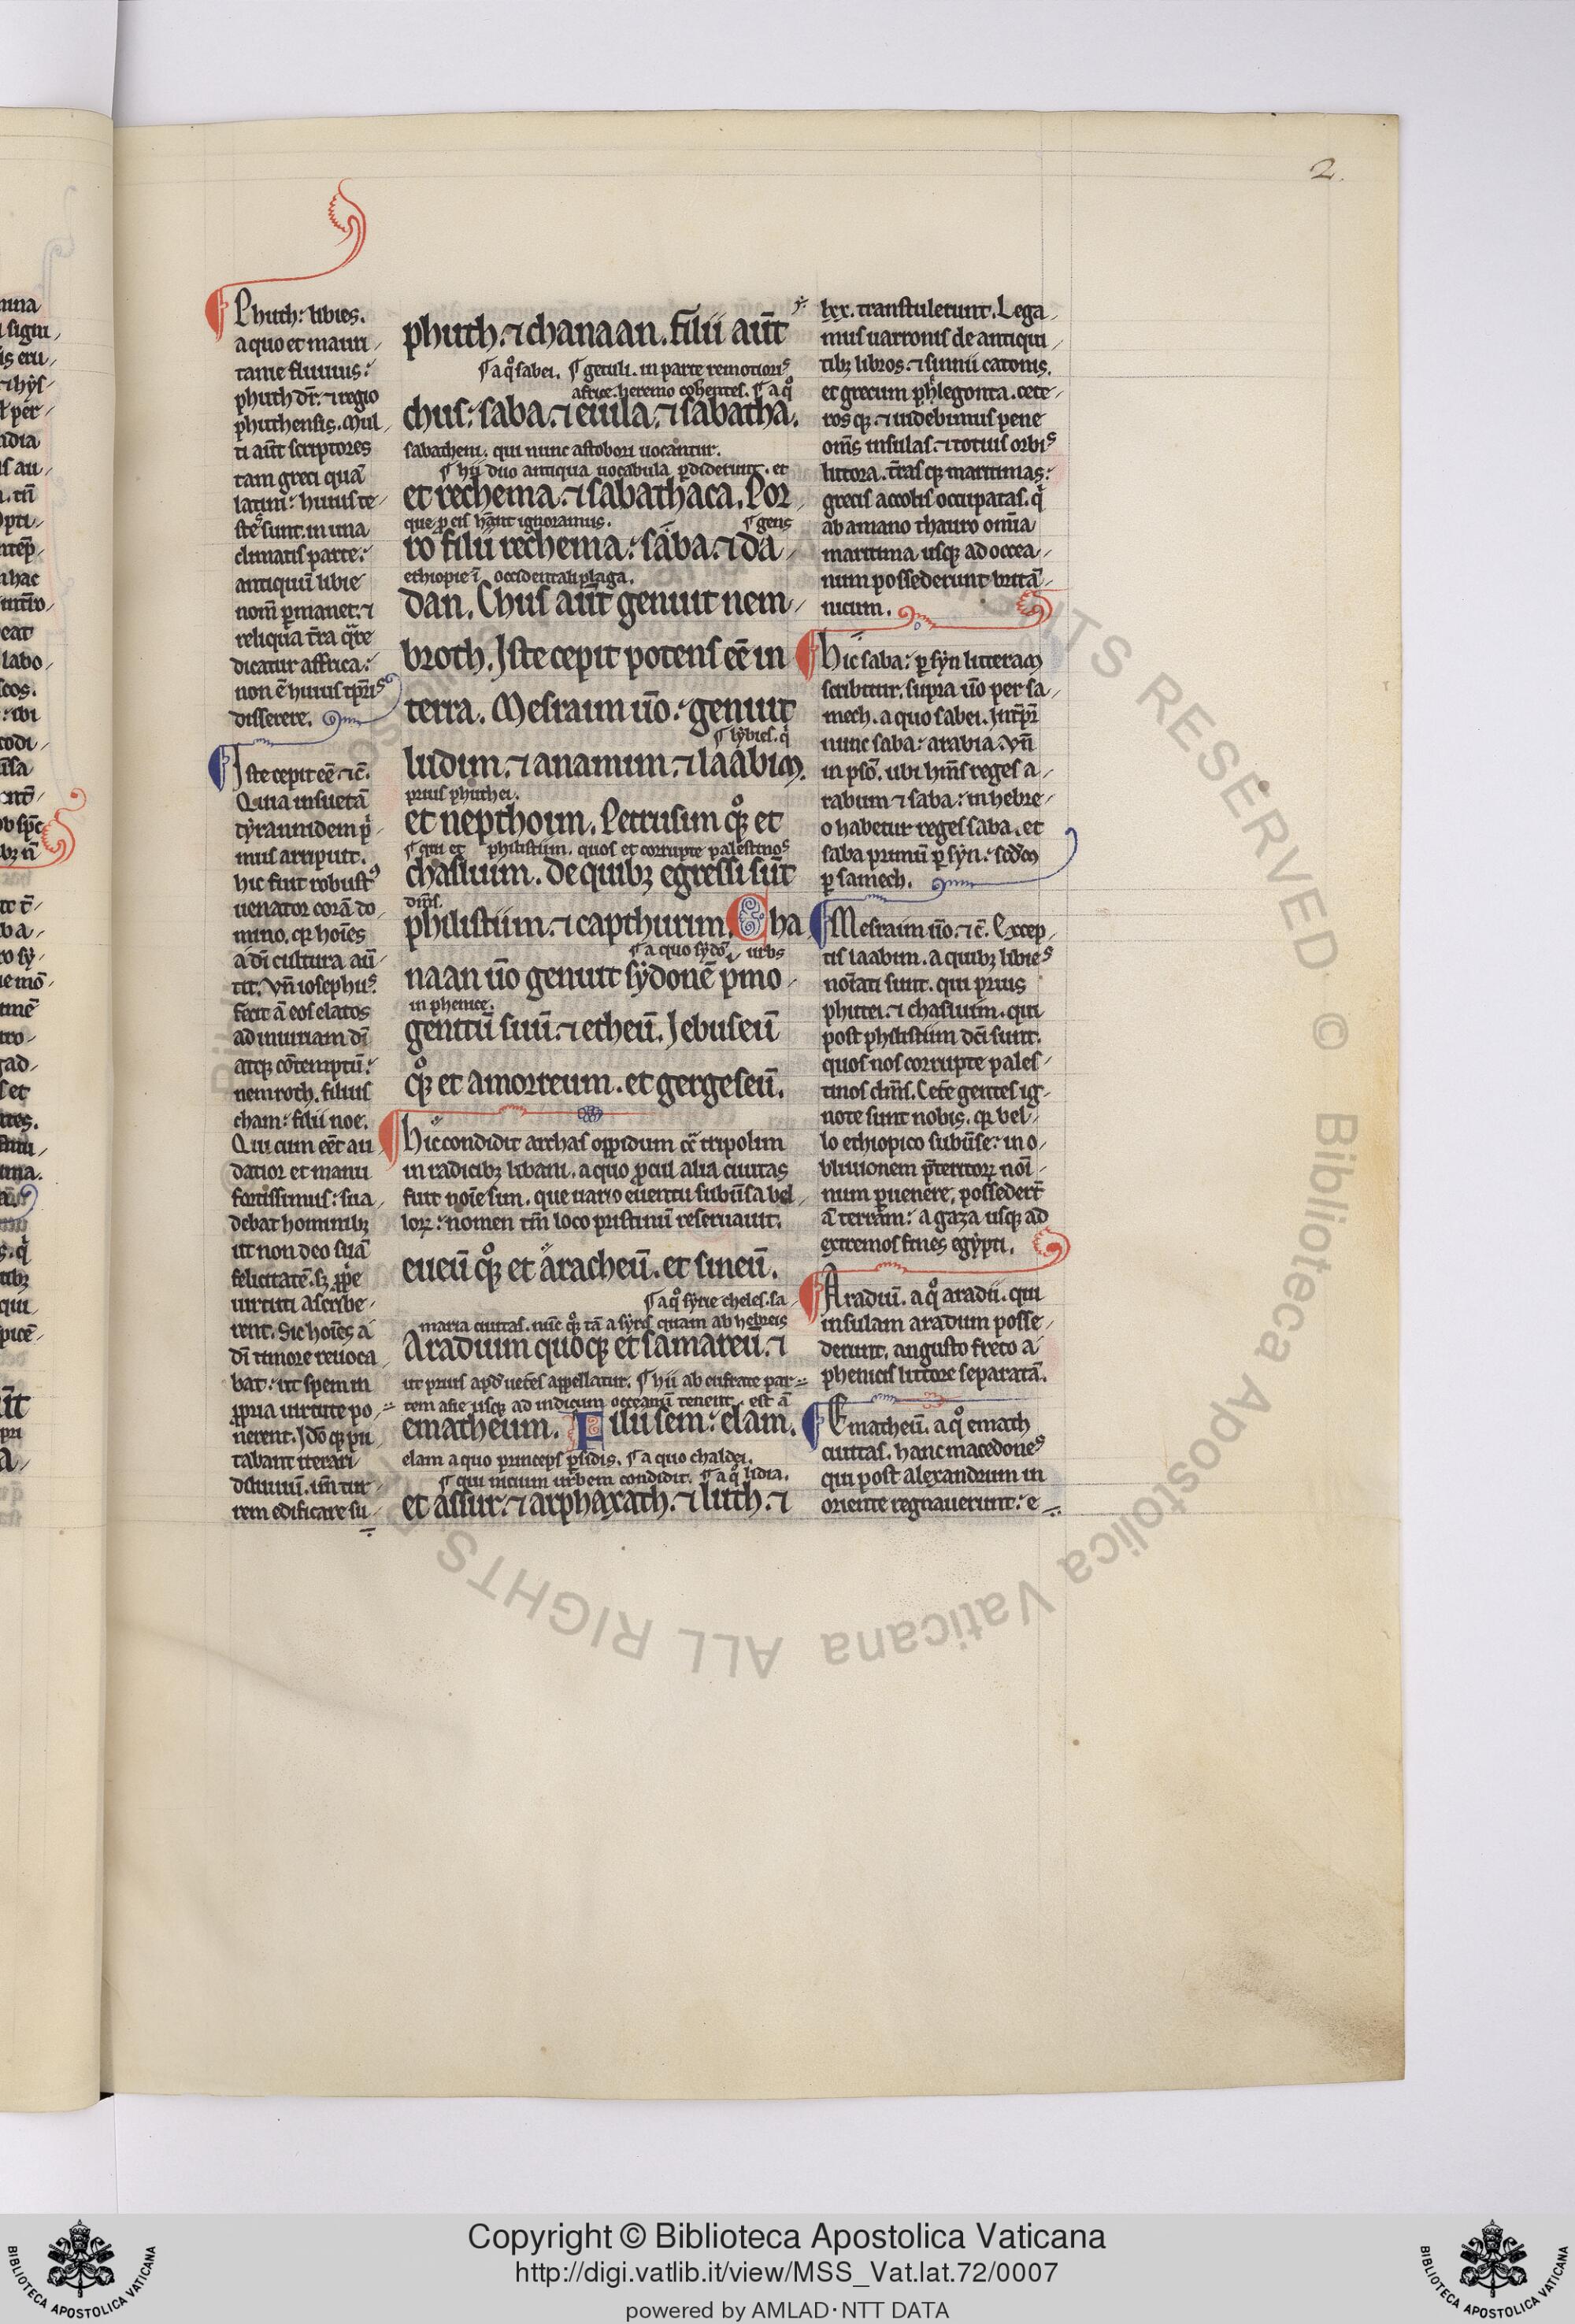 2.
Phuth: libies.
a quo et mauri
tanie fluuius:
phuth dr̄. ⁊ regio
phuthensis. Mul
ti aūt scriptores
tam greci quā
latini: huius te
stes sunt. in una
climatis parte:
antiquū libie
nom̄ pmanet. ⁊
reliqua t̄ra q̄re
dicatur affrica:
non ē huius tp̄ris
disserere.
Iste cepit eē ⁊ c̄.
Quia insuetā
tyrannidem pⁱ
mus arripuit.
hic fuit robustꝰ
uenator corā do
mino. qꝛ hoīes
a dī cultura au̅
tit. Vn̄ iosephus.
fecit ā eos elatos
ad iniuriam dī
atqꝫ cōtemptū:
nemroth. filius
cham: filii noe.
Qui cum eēt au
datior et manu
fortissimus: sua
debat hominibꝫ
ut non deo suā
felicitatē. sꝫ ꝓp̄e
uirtuti ascribe
rent. Sic hoīes a
dī timore reuoca
bat: ut spem in
ꝓpria uirtute po
nerent. Idō qꝫ pu
tabant iterari
diluuiū. un̄ tur
rem edificare su
phuth. ⁊ chanaan. filii aūt
¶ a qͦ sabei. ¶ getuli. in parte remotioris
africe. heremo coh̄entes. ¶ a qͦ
chus: saba. ⁊ euila. ⁊ sabatha.
sabatheni. qui nunc astobori uocantur.
¶ hii duo antiqua uocabula ꝑdiderunt. et
et rechema. ⁊ sabathaca. Por
que ꝓ eis hānt ignoramus. ¶ gens
ro filii rechema: saba. ⁊ da
ethiopie ī occidentali plaga.
dan. Chus aūt genuit nem
broth. Iste cepit potens eē in
terra. Mesraim ūo: genuit
¶ lybies. qⁱ
ludim. ⁊ anamim. ⁊ laabim.
prius phuthei.
et nepthoim. Petrusim qͦꝫ et
¶ qui et philistiim. quos et corrupte palestinos
chasluim. de quibꝫ egressi sūt
dīms.
philistiim. ⁊ capthurim. Cha
¶ a quo sydō. urbs
naan ūo genuit sydonē pmo
in phenice.
genitū suū. ⁊ etheū. Iebuseū
qͦꝫ et amorreum. et gergeseū.
Hic condidit archas oppidum cͣ tripolim
in radicibꝫ libani. a quo ꝓcul alia ciuitas
fuit noīe sin. que uario euentu subūsa bel
loꝝ: nomen tm̄ loco pristinū reseruauit.
eueū qͦꝫ et aracheū. et sineū.
¶ a qͦ syrie cheles. sa
maria ciuitas. nūc qͦꝫ tā a syris quam ab hebreis
Aradium quoqꝫ et samareū. ⁊
ut prius apd ueteēs appellatur. ¶ Hii ab eufrate par
tem asie usqꝫ ad indicum occeanū tenent. est ā
ematheum. Filii sem: elam.
elam a quo princeps ꝑsidis. ¶ a quo chaldei.
¶ qui nicium urbem condidit. ¶ a qͦ lidia.
et assur. ⁊ arphaxath. ⁊ luth. ⁊
lxx. transtulerunt. Lega
mus uarronis de antiqui
tibꝫ libros. ⁊ sinnii catonis.
et grecum phlegonta. cete
ros qꝫ. ⁊ uidebimus pene
om̄s insulas. ⁊ totius orbis
littora. t̄ras qꝫ maritimas:
grecis accolis occupatas. qⁱ
ab amano thauro omīa
maritima usqꝫ ad occea
num possederunt britā
nicum.
Hic saba: ꝑ syn litteram
scribitur. supra ūo per sa
mech. a quo sabei. Int̄pr̄
nunc saba: arabia. Vn̄
in psō. ubi hm̄s reges a
rabum ⁊ saba: in hebre
o habetur reges saba. et
saba primū ꝑ syn. scd̄m
ꝑ samech.
Mesraim ūo. ⁊ c̄. Excep
tis laabim. a quibꝫ libies
noīati sunt. qui prius
phutei. ⁊ chasluim. qui
post philistiim dcī sunt.
quos nos corrupte pales
tinos dīm̄s. Cet̄e gentes ig
note sunt nobis. qꝛ bel
lo ethiopico subūse: in o
bliuionem p̄teritoꝝ noī
num ꝑuenere. possedert̄
ā terram: a gaza usqꝫ ad
extremos fines egypti.
Aradiū. a qͦ aradii. qui
insulam aradum posse
derunt. angusto freto a
phenicis littore separatā.
Ematheū. a qͦ emath
ciuitas. hanc macedones
qui post alexandrum in
oriente regnauerunt: e
Copyright © Biblioteca Apostolica Vaticana
http://digi.vatlib.it/view/MSS_Vat.lat.72/0007
powered by AMLAD·NTT DATA
BIBLIOTECA APOSTOLICA VATICANA
BIBLIOTECA APOSTOLICA VATICANA
© Biblioteca Apostolica Vaticana ALL RIGHTS RESERVED